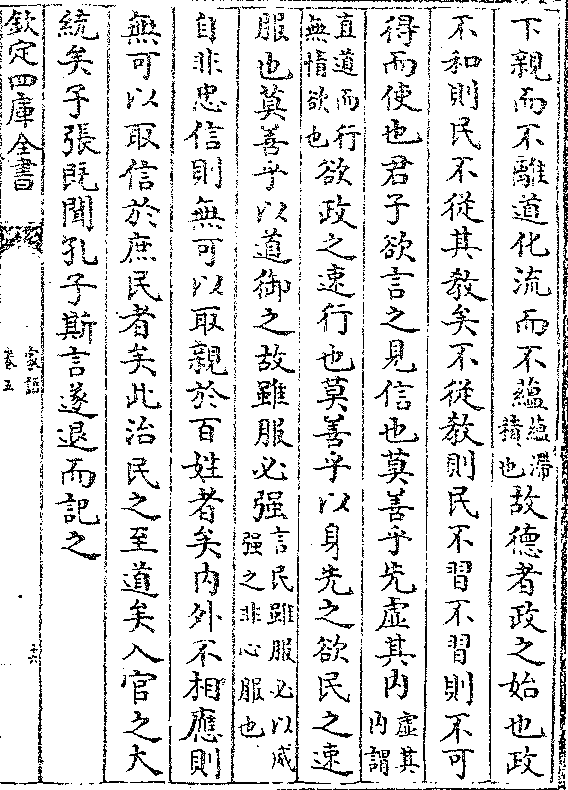 下親而不離道化流而不蘊蘊滯積也故德者政之始也政
不和則民不從其教矣不從教則民不習不習則不可
得而使也君子欲言之見信也莫善乎先虛其内虛其内謂
直道而行無情欲也欲政之速行也莫善乎以身先之欲民之速
服也莫善乎以道御之故雖服必强言民雖服必以威强之非心服也
自非忠信則無可以取親於百姓者矣内外不相應則
無可以取信於庶民者矣此治民之至道矣入官之大
統矣子張既聞孔子斯言遂退而記之
欽定四庫全書
家語
卷五